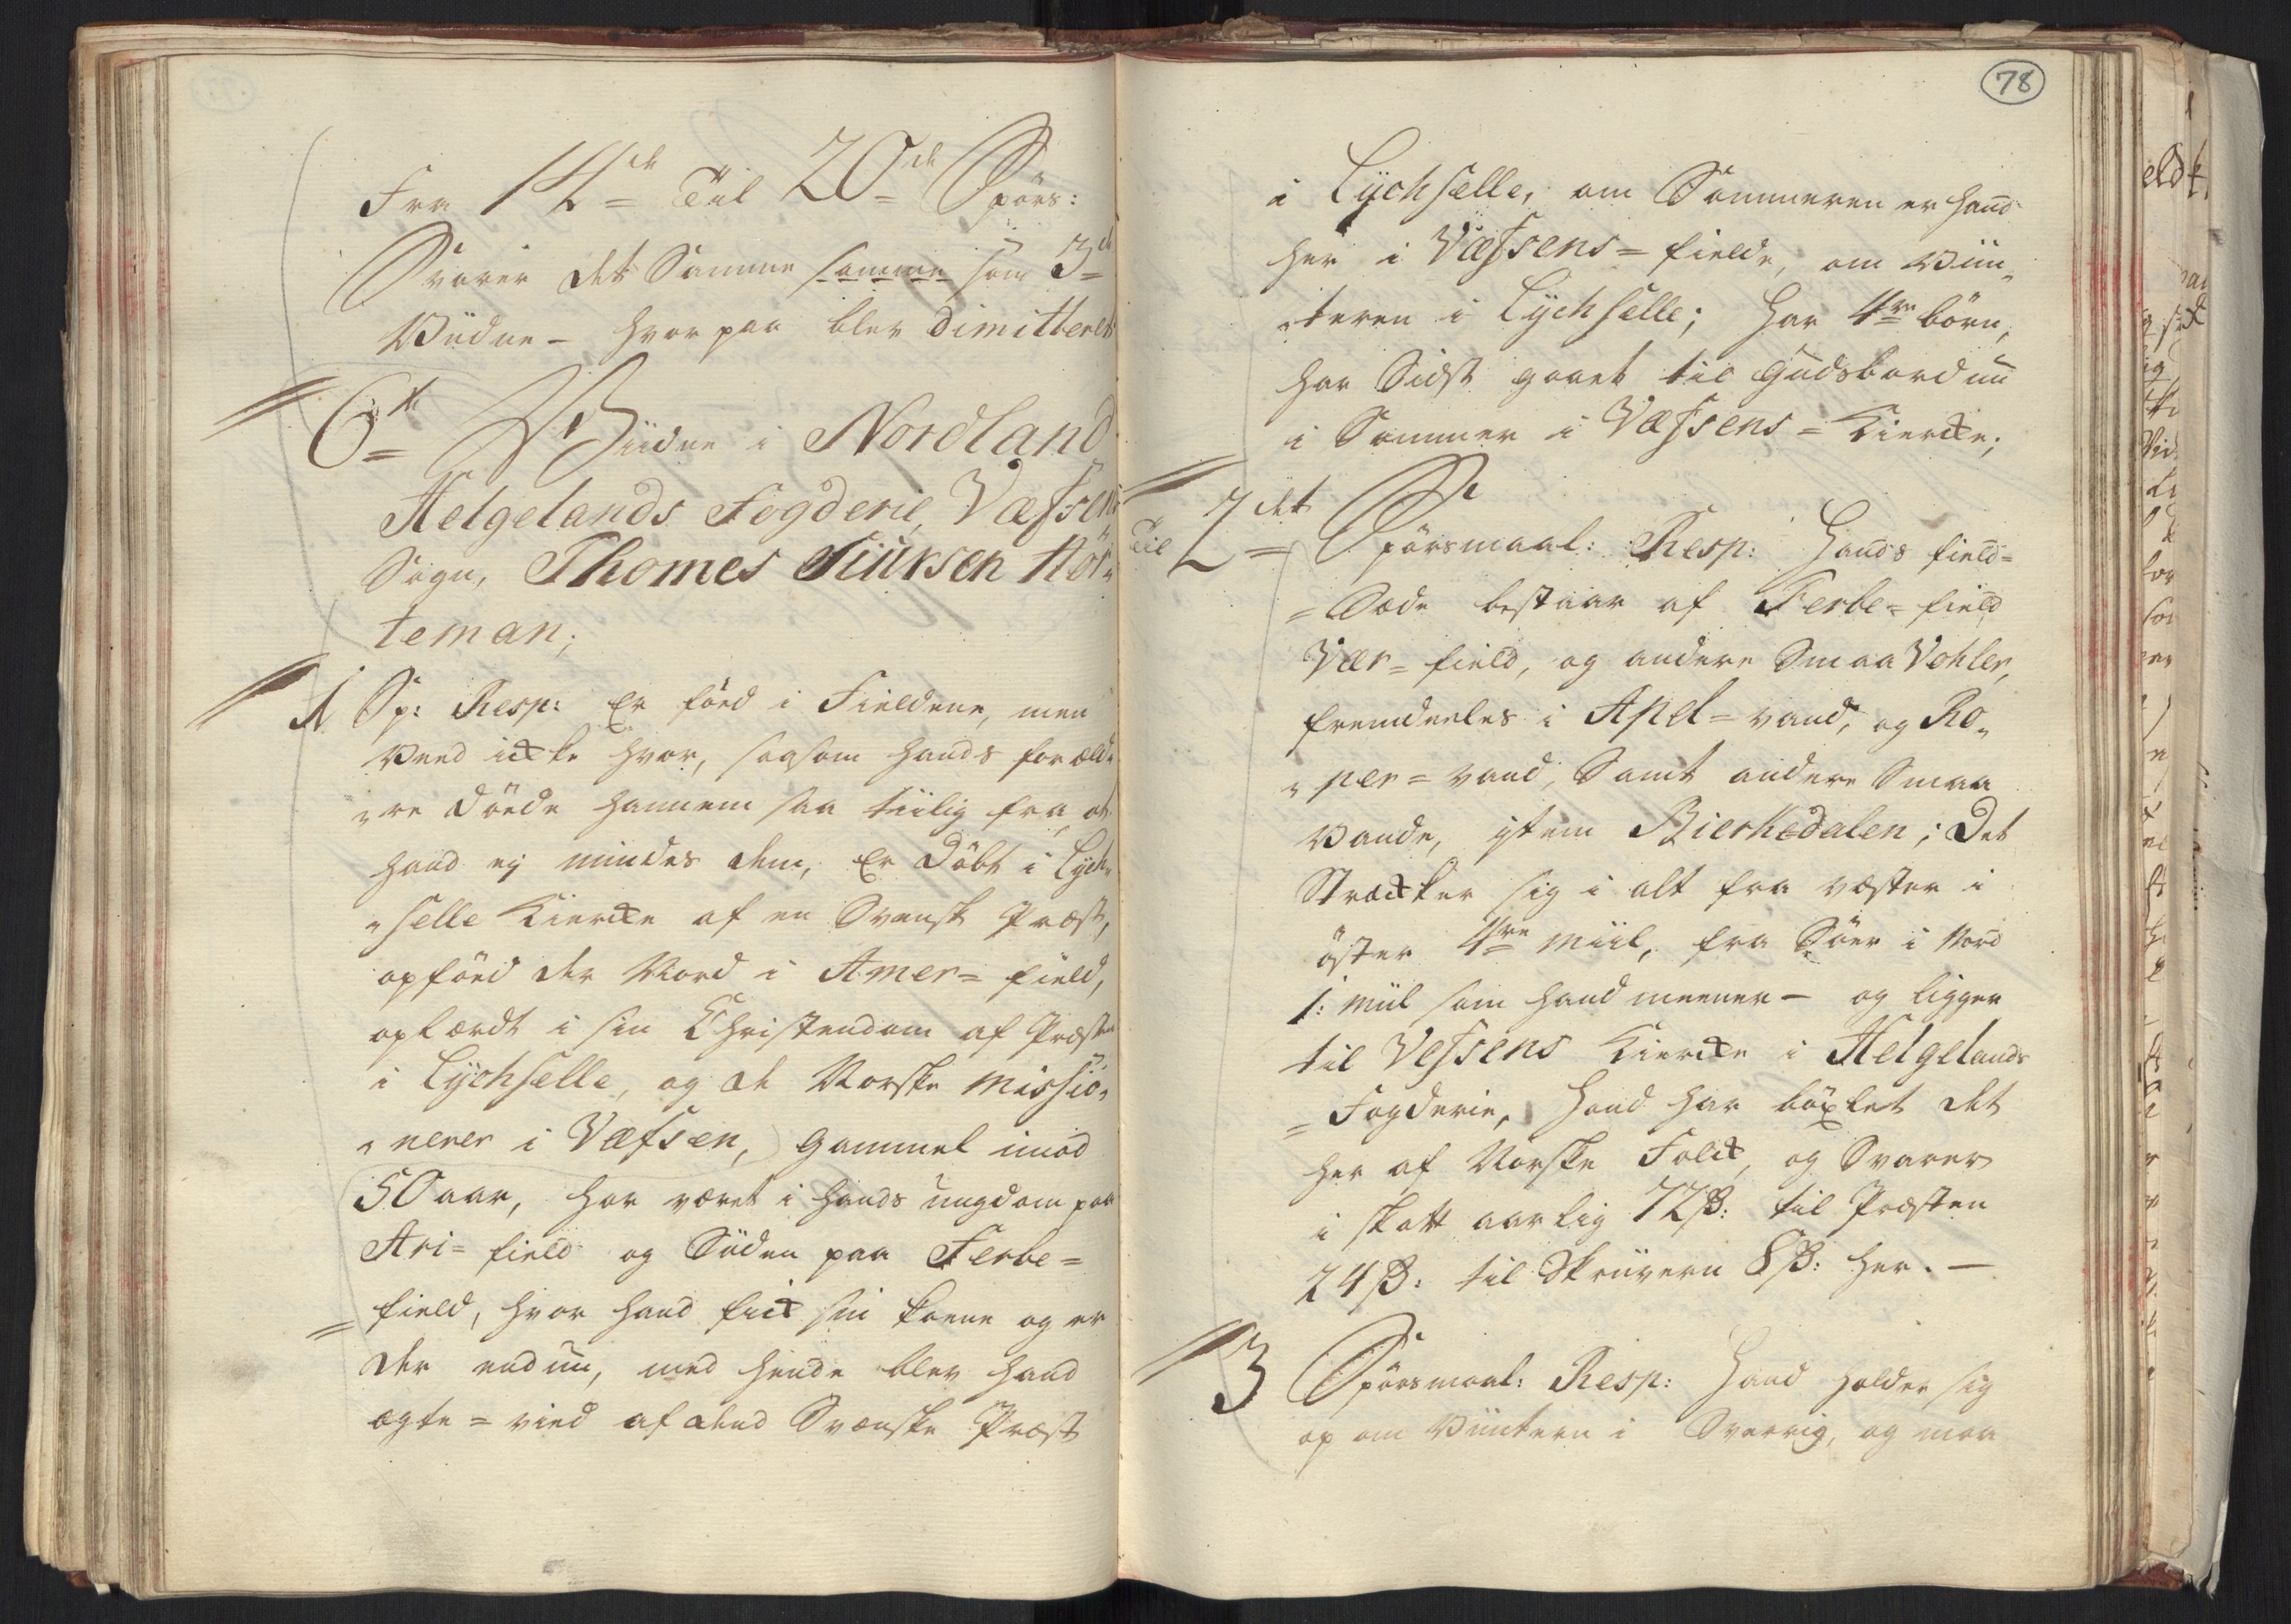 Fra 14de Til 20de Spörs:
Svarer det Samme samme som 3de
Viidne - hvorpaa blev dimitteret
6te Viidne i Nordland
Helgelands Fogderie, Væfsens
Sogn, Thomes Siursen Hör„
teman;
1 Sp: Resp: Er föed i Fieldene, men
veed icke hvor, saasom hands foræld„
„re döede hannem saa tiilig fra, at
hand ej mindes dem, Er Döbt i Lych„
„selle Kiercke af en Svensk Præst,
opföed der Nord i Amer= field,
oplærdt i sin Christendom af Præsten
i Lychselle, og de Norske Missio„
„nerer i Væfsen, gammel imod
50 aar, har været i hands ungdom paa
Ari= field og Siiden paa Ferbe=
= field, hvor hand fick sin kone og er
der endnu, med hende blev hand
ægte= vied af dend Svenske Præst
78
i Lychselle, om Sommeren er hand
her i Væfsens= fielde, om Viin„
„teren i Lychselle; har 4re börn,
har Sidst gaaet til Gudsbord nu
i Sommer i Væfsens= Kiercke;
Til 2det Spörsmaal: Resp: Hands field=
= Böde bestaar af Ferbe= field
Vær= field, og andere Smaa Vohler,
fremdeeles i Apel= vand, og Rö„
„per= vand, Samt andere Smaa
Vande, item Bierkedalen; Det
Strecker sig i alt fra væster i
öster 4re Miil, fra Söer i Nord
1: Miil som hand meener - og ligger
til Vefsens Kiercke i Helgelands
= Fogderie, Hand har böxlet det
her af Norske Folck, og Svarer
i skatt aarlig 72 ß: til Præsten
24 ß: til Skriivern 8 ß: her. -
3 Spörsmaal: Resp: Hand holder sig
op om Viintern i Sverrig, og maa